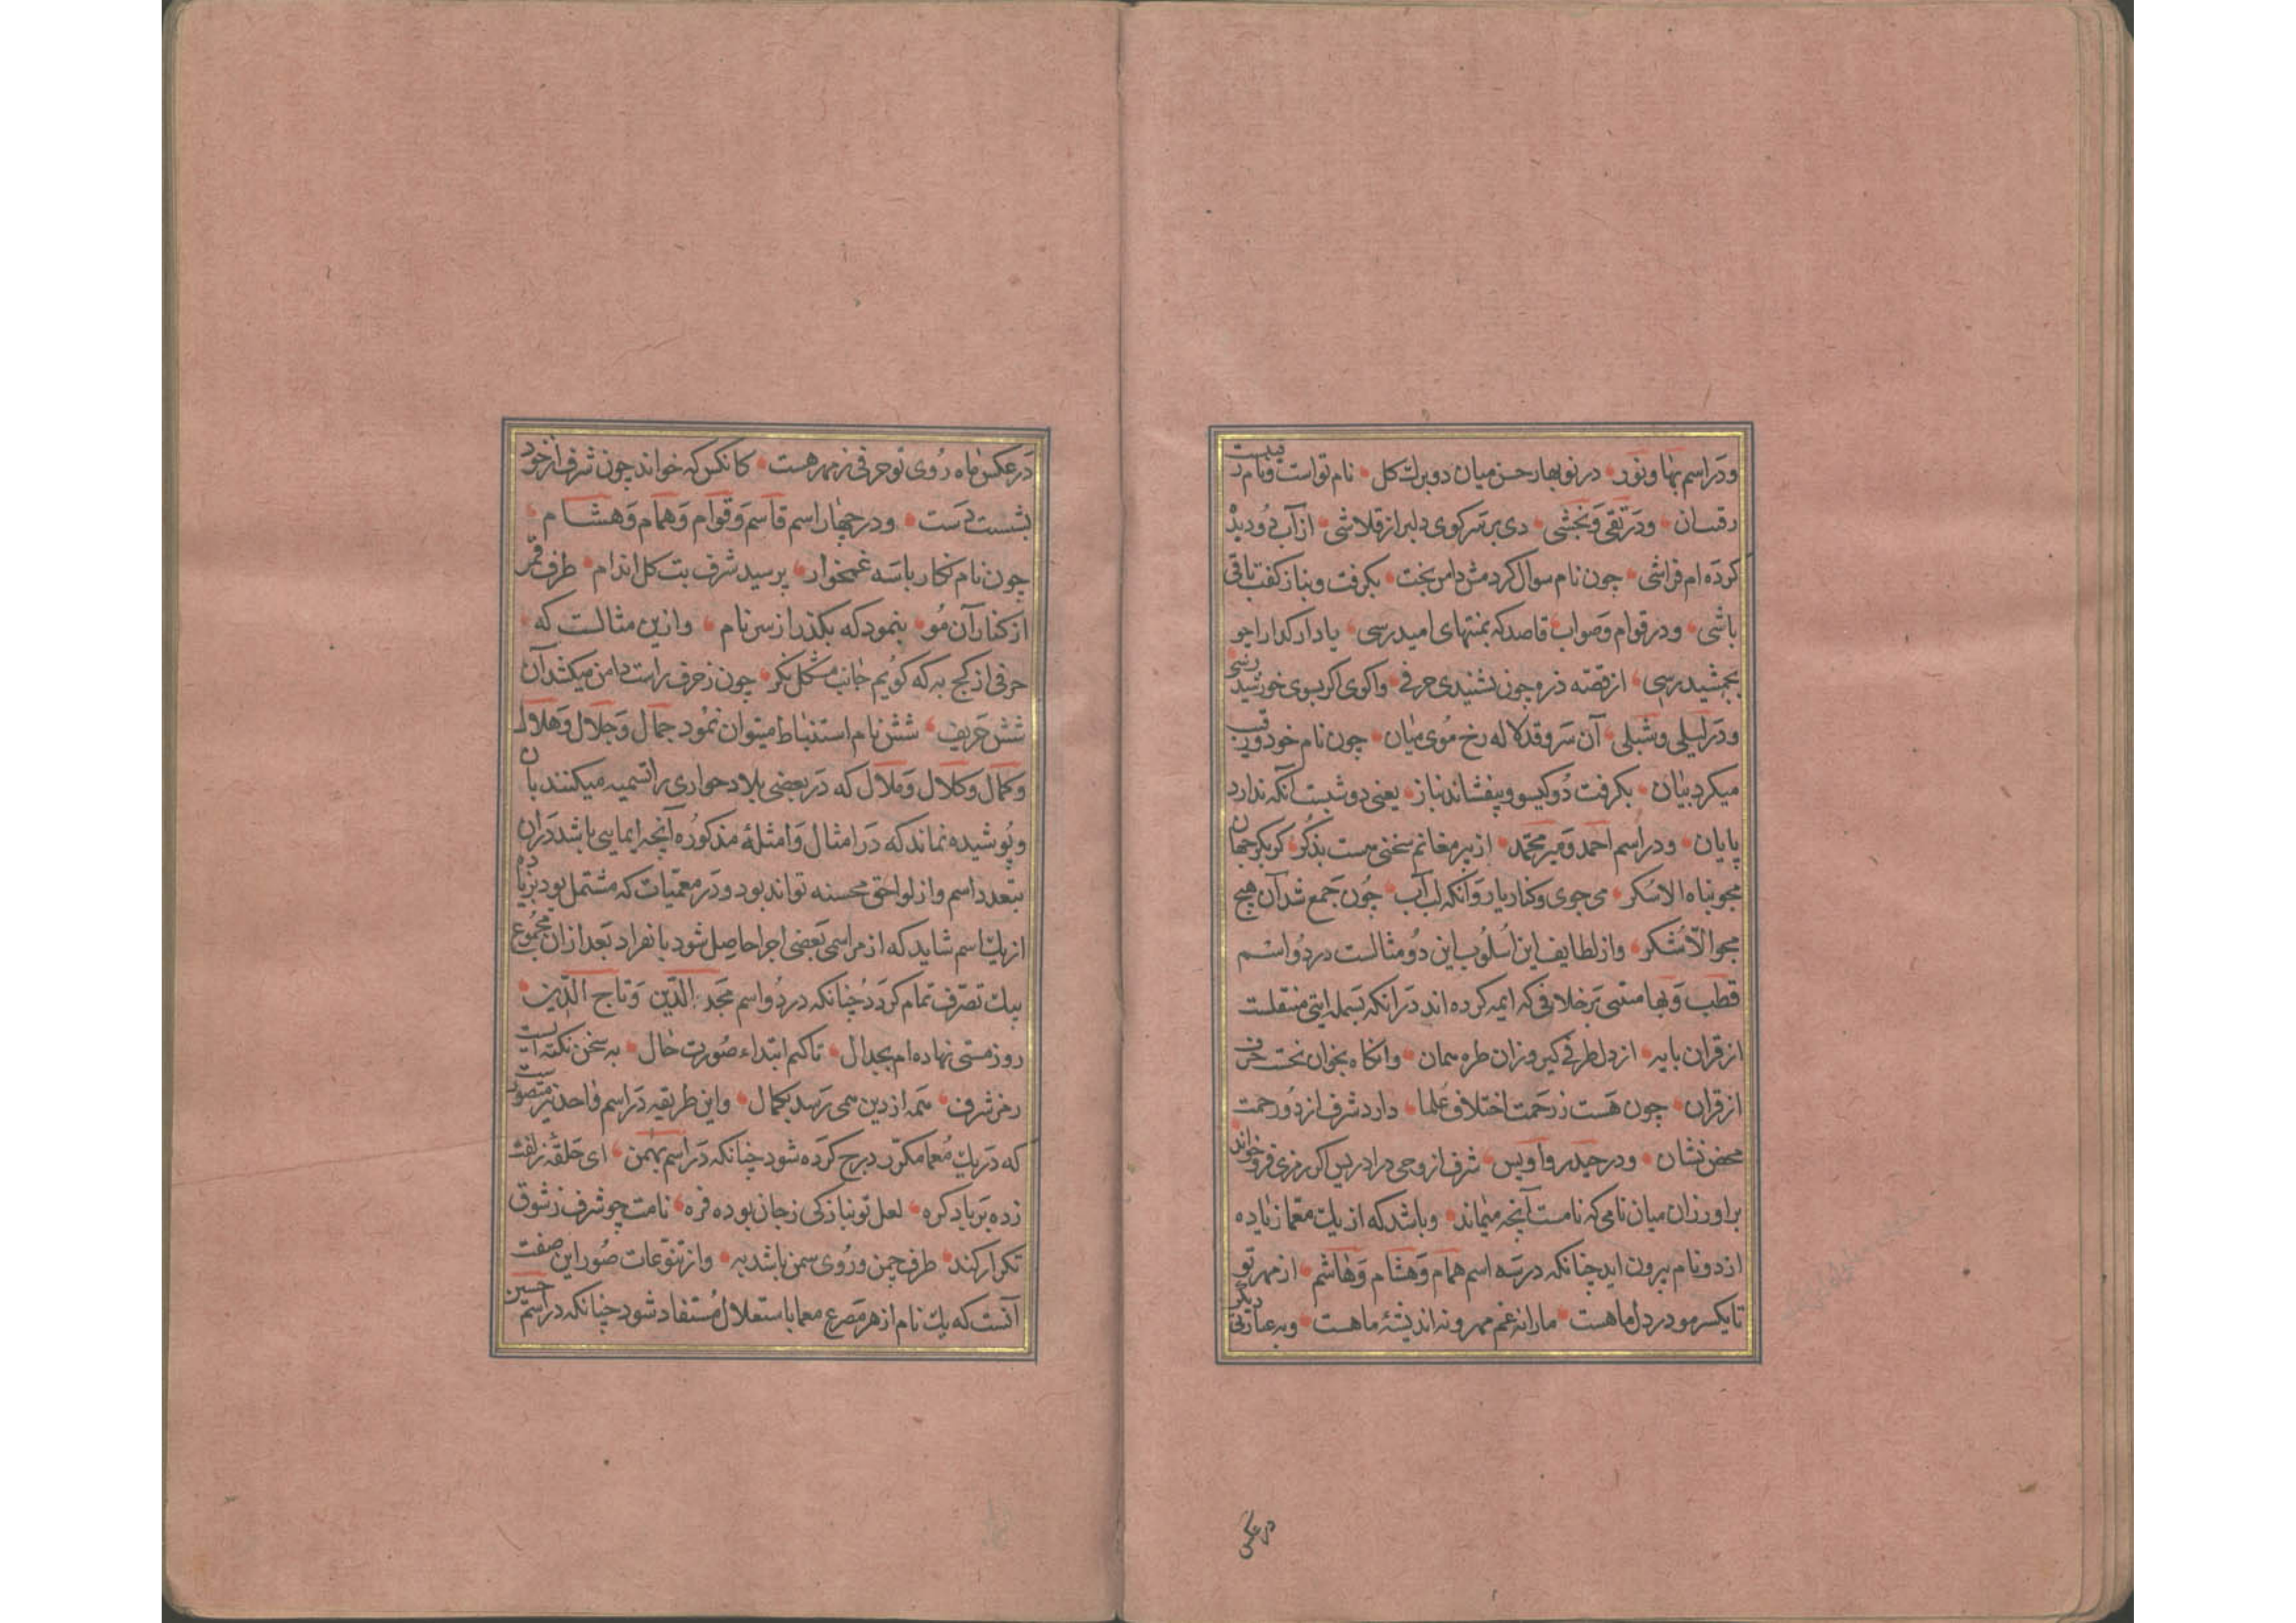 ودر اسم بها ونور در نوبهار حسن میان دو برك كل نام تواست ونام ر قیبت
رقسان ودر تقی وبخشی دی بر سر کوی دلبر از قلاشی از آب دو دیده
کرده ام فراشی چون نام سوال کردمش دامن بخت بکرفت وبناز کفت باقی
باشی ودر قوام وصواب قاصد که بمنتهای امید رسی یاد ار کدا را چو
بجمشید رسی از قصه ذره چون شنیدی حرفی واکوی اکر بسوی خورشید رسی
ودر لیلی وشبلی آن سرو قد لاله رخ موی میان چون نام خود ورقیب
میکرد بیان بکرفت دو کیسو وبیفشاند بناز یعنی دو شبست آنکه ندارد
پایان ودر اسم احمد ومیر محمد از پیر مغانم سخنی هست بذکر کز بکر جهان
مجو پناه الا سکر می جوی وکنار یار وانکه لب آب چون جمع شد آن هیچ
مجو الا شکر واز لطایف این اسلوب این دو مثالست در دو اسم
قطب وبها مبتنی بر خلافی که ایمه کرده اند در انکه بسمله ایتی مستقلست
از قران یا نه از دل طرفی کیر وزان طره سمان وانکاه بخوان نخست حرف
از قران چون هست ز رحمت اختلاف علما دارد شرف از دو رحمت
محض نشان ودر حیدر واویس شرف از وحی در ادریس اکر رمزی فرو خواند
براور زان میان نامی که نامست آنچه میماند وباشد که از یك معما زیاده
از دو نام بیرون اید چنانکه در سه اسم همام وهشام وهاشم از مهر تو
تا یکسر مو در دل ما هست ما را نه غم مهر ونه اندیشهٔ ما هست وبه عبارتی دیکر
در عکس
در عکس ماه روی تو حرفی ز مهر هست کانکس که خواند چون شرف از خود
بشست دست ودر چهار اسم قاسم وقوام وهمام وهشام
چون نام نکار با سه غمخوار پرسید شرف بت کل اندام طرف قمر
از کنار آن مو بنمود که بکذر از سر نام وازین مثالست که
حرفی از کج به که کویم جانب مشکل نکر چون ز حرف راست دامن میکشد آن
شش حریف شش نام استنباط میتوان نمود جمال وجلال وهلال
وکمال وکلال وملال که در بعضی بلاد جواری را تسمیه میکنند بان
وپوشیده نماند که در امثال وامثلهٔ مذکوره آنچه ایمایی باشد دران
بتعدد اسم واز لواحق محسنه تواند بود ودر معمیات که مشتمل بود بزیاده
از یك اسم شاید که از مراسی بعضی اجزا حاصل شود بانفراد بعد ازان مجموع
بیك تصرف تمام کردد چنانکه در دو اسم مجد الدین وتاج الدین
روز مستی نهاده ام بجدال تا کنم ابتداء صورت حال به سخن نکته ایست
رخ شرف شمه از دین می رسد بکمال واین طریقه در اسم واحد نیز متصورست
که در یك معما مکرر درج کرده شود چنانکه در اسم بهمن ای حلقه زلفت
زده بر باد کره لعل تو بنازکی ز جان بوده فره نامت چو شرف ز شوق
تکرار کند طرف چمن وروی سمن باشد به واز تنوعات صور این صفت
آنست که یك نام از هر مصرع معما باستقلال مستفاد شود چنانکه در اسم حسین